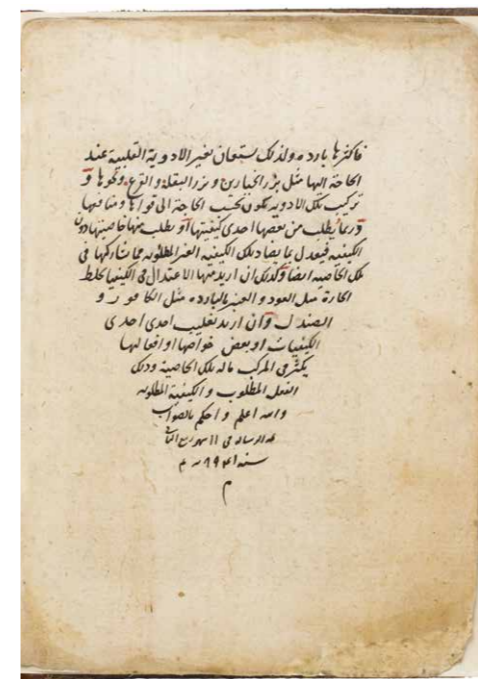 فاكثرها بارده ولذلك يستعان بغير الادوية القلبية عند
الحاجة اليها مثل بزر الخيارين وبزر البقلة والقرع ونحوها و
تركيب تلك الادويه يكون بحسب الحاجة الى قواها ومنافعها
وربما يطلب من بعضها احدى كيفيتها او يطلب منها خاصيتها دون
الكيفيه فيعدل بما يضاد تلك الكيفيه الغير المطلوبه مما شاركها فى
تلك الخاصيه ايضا وكذلك ان اريد منها الاعتدال فى الكيفيا كخلط
الحارة مثل العود و العنبر بالبارده مثل الكافور و
الصندل وان اريد تغليب احدى احدى
الكيفيات او بعض خواصها او افعالها
يكثر فى المركب ماله تلك الخاصية وذلك
الفعل المطلوب و الكيفية المطلوبه
والله اعلم و احكم بالصواب
الرساله فى ١١ شهر ربيع الثانى
سنه
م